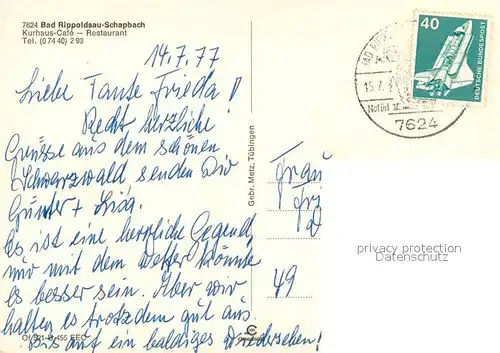 7624 Bad Rippoldsau-Schapbach
Kurhaus-Café — Restaurant
Tel. (07440) 293
14.7.77
Liebe Tante Frieda!
Recht herzliche
Grüsse aus dem schönen
Schwarzwald senden Dir
Günter + Lisa.
Es ist eine herrliche Gegend,
nur mit dem Wetter könnte
es besser sein. Aber wir
halten es trotzdem gut aus.
Bis auf ein baldiges Wiedersehen!
EEC
Gebr. Metz, Tübingen
Frau
49
privacy protection
Datenschutz
40
DEUTSCHE BUNDESPOST
BAD
15.7.
7624